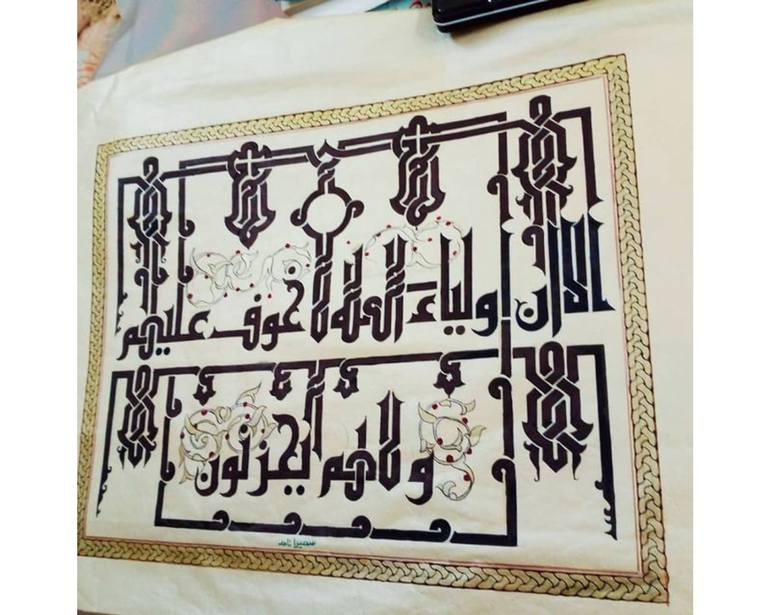 الا ان اولياء الله لا خوف عليهم
ولا هم يحزنون